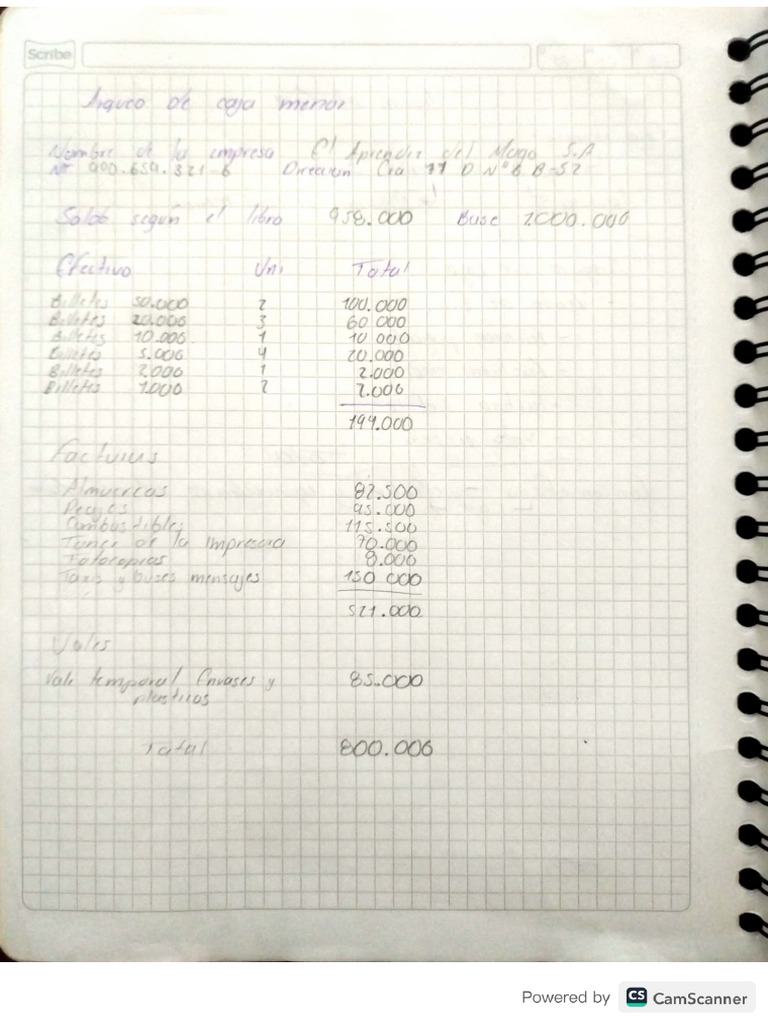 Scribe
Arqueo de caja menor
Nombre de la empresa El Aprendiz del Mago S.A
Nit 900.659.321-6 Direccion Cra 77 D Nº 6 B-52
Saldo según el libro 958.000 Base 1.000.000
Efectivo Uni Total
Billetes 50.000 2 100.000
Billetes 20.000 3 60.000
Billetes 10.000 1 10.000
Billetes 5.000 4 20.000
Billetes 2.000 1 2.000
Billetes 1.000 2 2.000
194.000
Facturas
Almuerzos 82.500
Peajes 95.000
Combustibles 115.500
Toner de la impresora 70.000
Fotocopias 8.000
Taxis y buses mensajes 150 000
521.000
Vales
Vale temporal Envases y
plasticos 85.000
Total 800.000
Powered by CS CamScanner